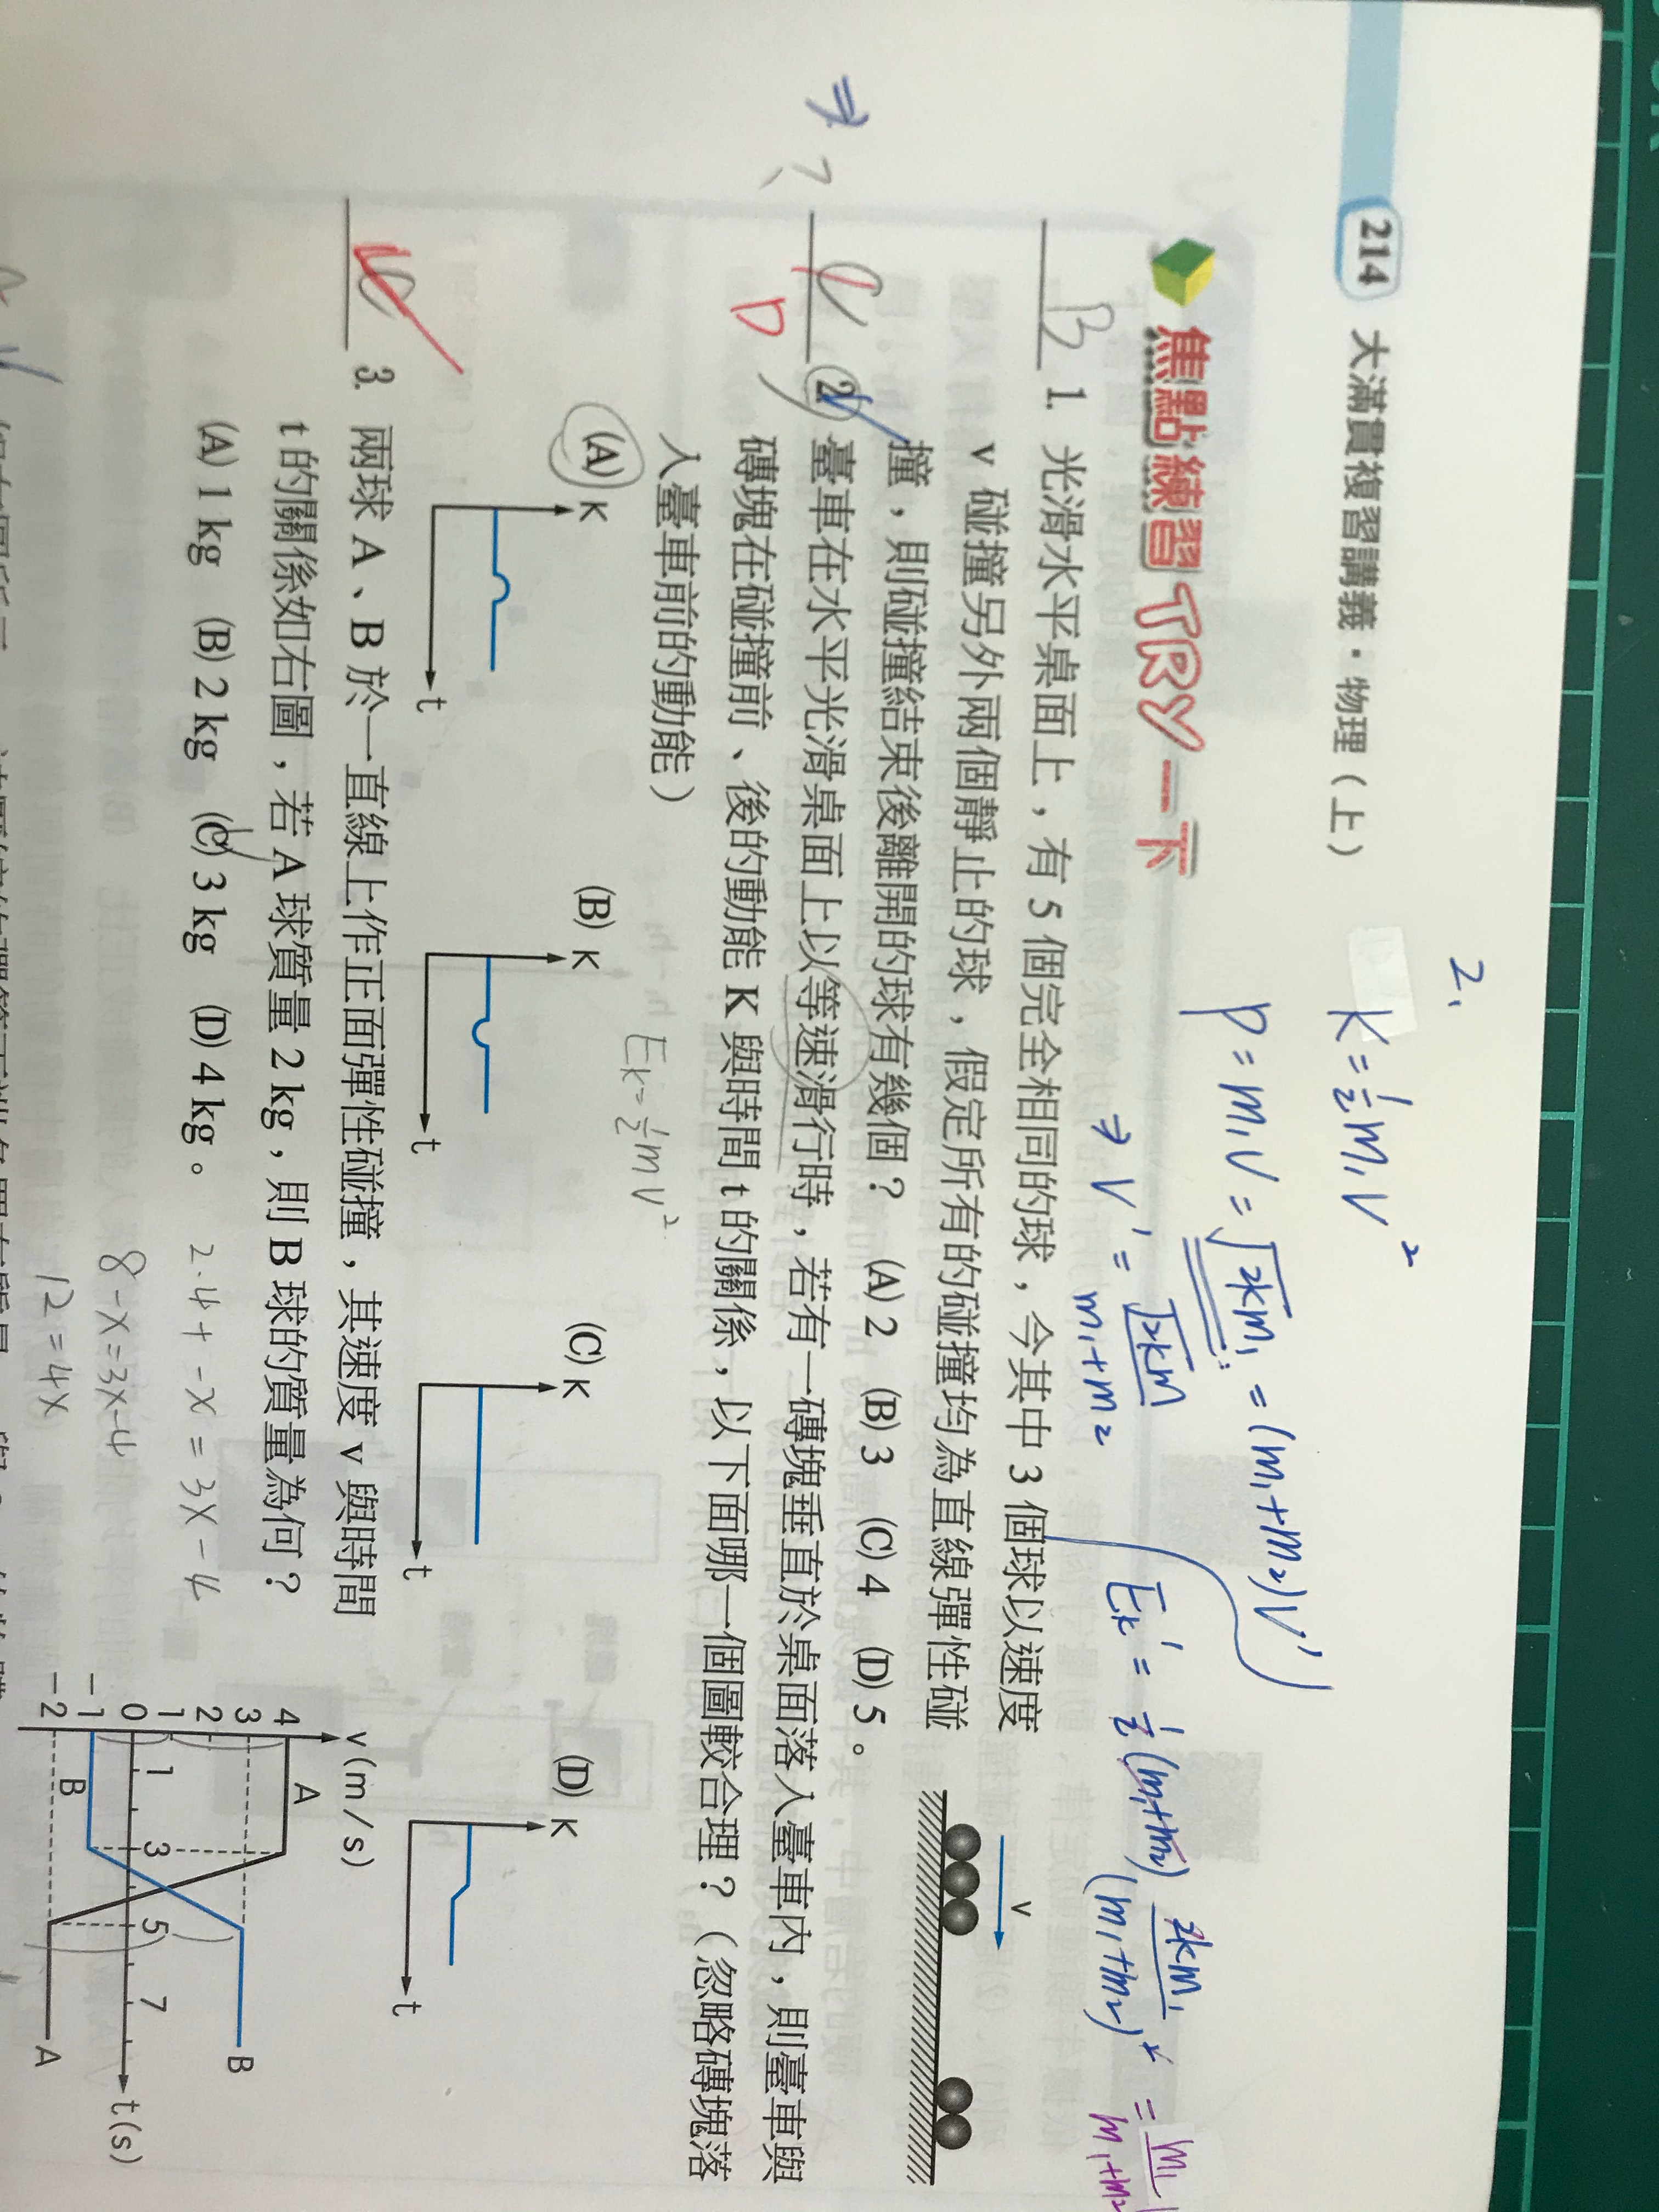 214 大滿貫複習講義・物理(上)
2.
K = ½m₁V²
P = m₁V = √2km₁ = (m₁+m₂)V'
⇒ V' = √2km / m₁+m₂
Ek' = ½(m₁+m₂) 2km₁ / (m₁+m₂)² = m₁ / m₁+m₂
焦點練習 TRY 一下
B 1. 光滑水平桌面上,有 5 個完全相同的球,今其中 3 個球以速度
v 碰撞另外兩個靜止的球,假定所有的碰撞均為直線彈性碰
撞,則碰撞結束後離開的球有幾個? (A) 2 (B) 3 (C) 4 (D) 5。
v
⇒
C
D
2. 臺車在水平光滑桌面上以等速滑行時,若有一磚塊垂直於桌面落入臺車內,則臺車與
磚塊在碰撞前、後的動能 K 與時間 t 的關係,以下面哪一個圖較合理?(忽略磚塊落
入臺車前的動能)
Ek = ½mV²
(A) K t
(B) K t
(C) K t
(D) K t
C 3. 兩球 A、B 於一直線上作正面彈性碰撞,其速度 v 與時間
t 的關係如右圖,若 A 球質量 2 kg,則 B 球的質量為何?
(A) 1 kg (B) 2 kg (C) 3 kg (D) 4 kg。
2·4 + -x = 3x - 4
8 - x = 3x - 4
12 = 4x
v (m/s)
4 A
3
2
1
0 1 3 5 7 t(s)
-1 B
-2
B
A